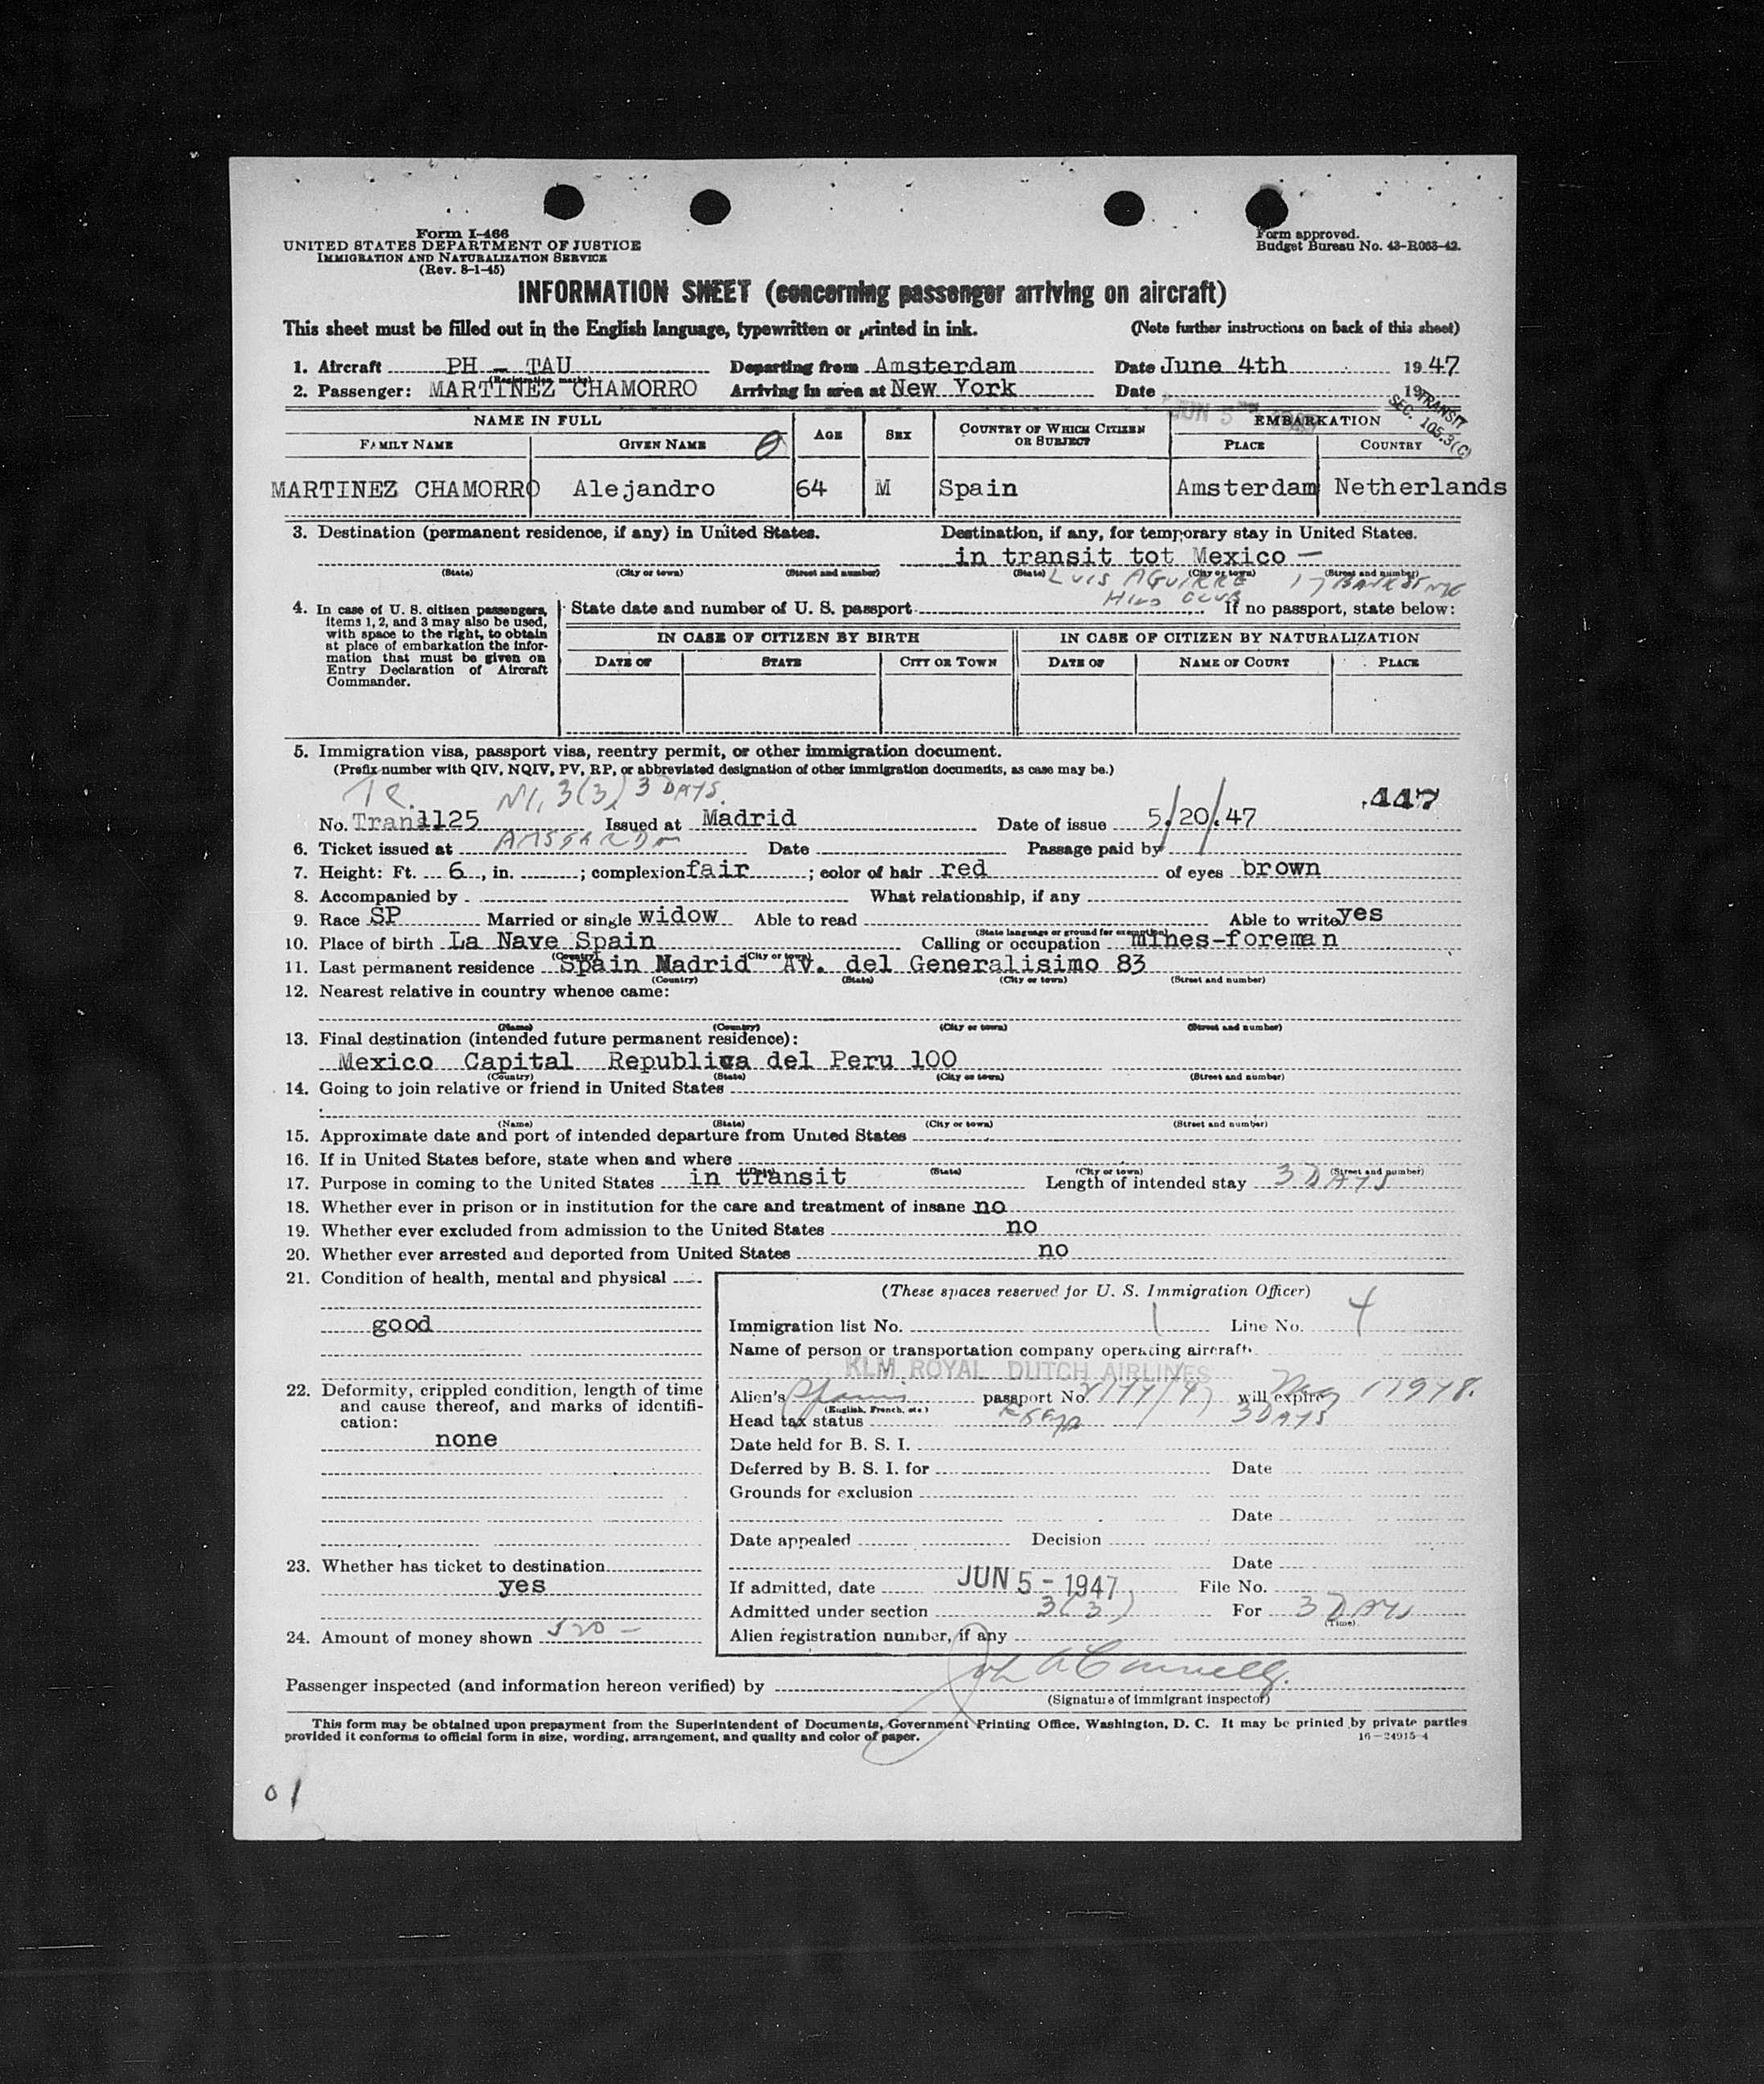 Form I-466
UNITED STATES DEPARTMENT OF JUSTICE
IMMIGRATION AND NATURALIZATION SERVICE
(Rev. 8-1-45)
Form approved.
Budget Bureau No. 43-R063-42.
INFORMATION SHEET (concerning passenger arriving on aircraft)
This sheet must be filled out in the English language, typewritten or printed in ink. (Note further instructions on back of this sheet)
1. Aircraft PH - TAU Departing from Amsterdam Date June 4th 1947
(Registration marks)
2. Passenger: MARTINEZ CHAMORRO Arriving in area at New York Date 19
JUN 5
TRANSIT
SEC. 105.3(C)
NAME IN FULL AGE SEX COUNTRY OF WHICH CITIZEN OR SUBJECT EMBARKATION
FAMILY NAME GIVEN NAME PLACE COUNTRY
MARTINEZ CHAMORRO Alejandro 64 M Spain Amsterdam Netherlands
3. Destination (permanent residence, if any) in United States. Destination, if any, for temporary stay in United States.
in transit tot Mexico —
(State) (City or town) (Street and number) (State) (City or town) (Street and number)
LUIS AGUIRRE 17 BANK ST NYC
CLUB
4. In case of U. S. citizen passengers, items 1, 2, and 3 may also be used, with space to the right, to obtain at place of embarkation the information that must be given on Entry Declaration of Aircraft Commander.
State date and number of U. S. passport If no passport, state below:
IN CASE OF CITIZEN BY BIRTH IN CASE OF CITIZEN BY NATURALIZATION
DATE OF STATE CITY OR TOWN DATE OF NAME OF COURT PLACE
5. Immigration visa, passport visa, reentry permit, or other immigration document.
(Prefix number with QIV, NQIV, PV, RP, or abbreviated designation of other immigration documents, as case may be.)
TR. 3(3) 3 DAYS. 447
No. Tran1125 Issued at Madrid Date of issue 5/20/.47
6. Ticket issued at AMSTERDAM Date Passage paid by
7. Height: Ft. 6, in. ; complexion fair ; color of hair red of eyes brown
8. Accompanied by What relationship, if any
9. Race SP Married or single widow Able to read Able to write yes
(State language or ground for exemption)
10. Place of birth La Nave Spain Calling or occupation mines-foreman
(Country) (City or town)
11. Last permanent residence Spain Madrid AV. del Generalisimo 83
(Country) (State) (City or town) (Street and number)
12. Nearest relative in country whence came:
(Name) (Country) (City or town) (Street and number)
13. Final destination (intended future permanent residence):
Mexico Capital Republica del Peru 100
(Country) (State) (City or town) (Street and number)
14. Going to join relative or friend in United States
(Name) (State) (City or town) (Street and number)
15. Approximate date and port of intended departure from United States
16. If in United States before, state when and where
(Date) (State) (City or town) (Street and number)
17. Purpose in coming to the United States in transit Length of intended stay 3 DAYS
18. Whether ever in prison or in institution for the care and treatment of insane no
19. Whether ever excluded from admission to the United States no
20. Whether ever arrested and deported from United States no
21. Condition of health, mental and physical
good
22. Deformity, crippled condition, length of time and cause thereof, and marks of identification:
none
23. Whether has ticket to destination
yes
24. Amount of money shown 520 —
(These spaces reserved for U. S. Immigration Officer)
Immigration list No. 1 Line No. 4
Name of person or transportation company operating aircraft
KLM ROYAL DUTCH AIRLINES
Alien's passport No. will expire 1978.
(English, French, etc.)
Head tax status 3 DAYS
Date held for B. S. I.
Deferred by B. S. I. for Date
Grounds for exclusion
Date
Date appealed Decision
Date
If admitted, date JUN 5 - 1947 File No.
Admitted under section 3(3) For 3 DAYS
(Time)
Alien registration number, if any
Passenger inspected (and information hereon verified) by
(Signature of immigrant inspector)
This form may be obtained upon prepayment from the Superintendent of Documents, Government Printing Office, Washington, D. C. It may be printed by private parties
provided it conforms to official form in size, wording, arrangement, and quality and color of paper. 16—24915-4
0 1